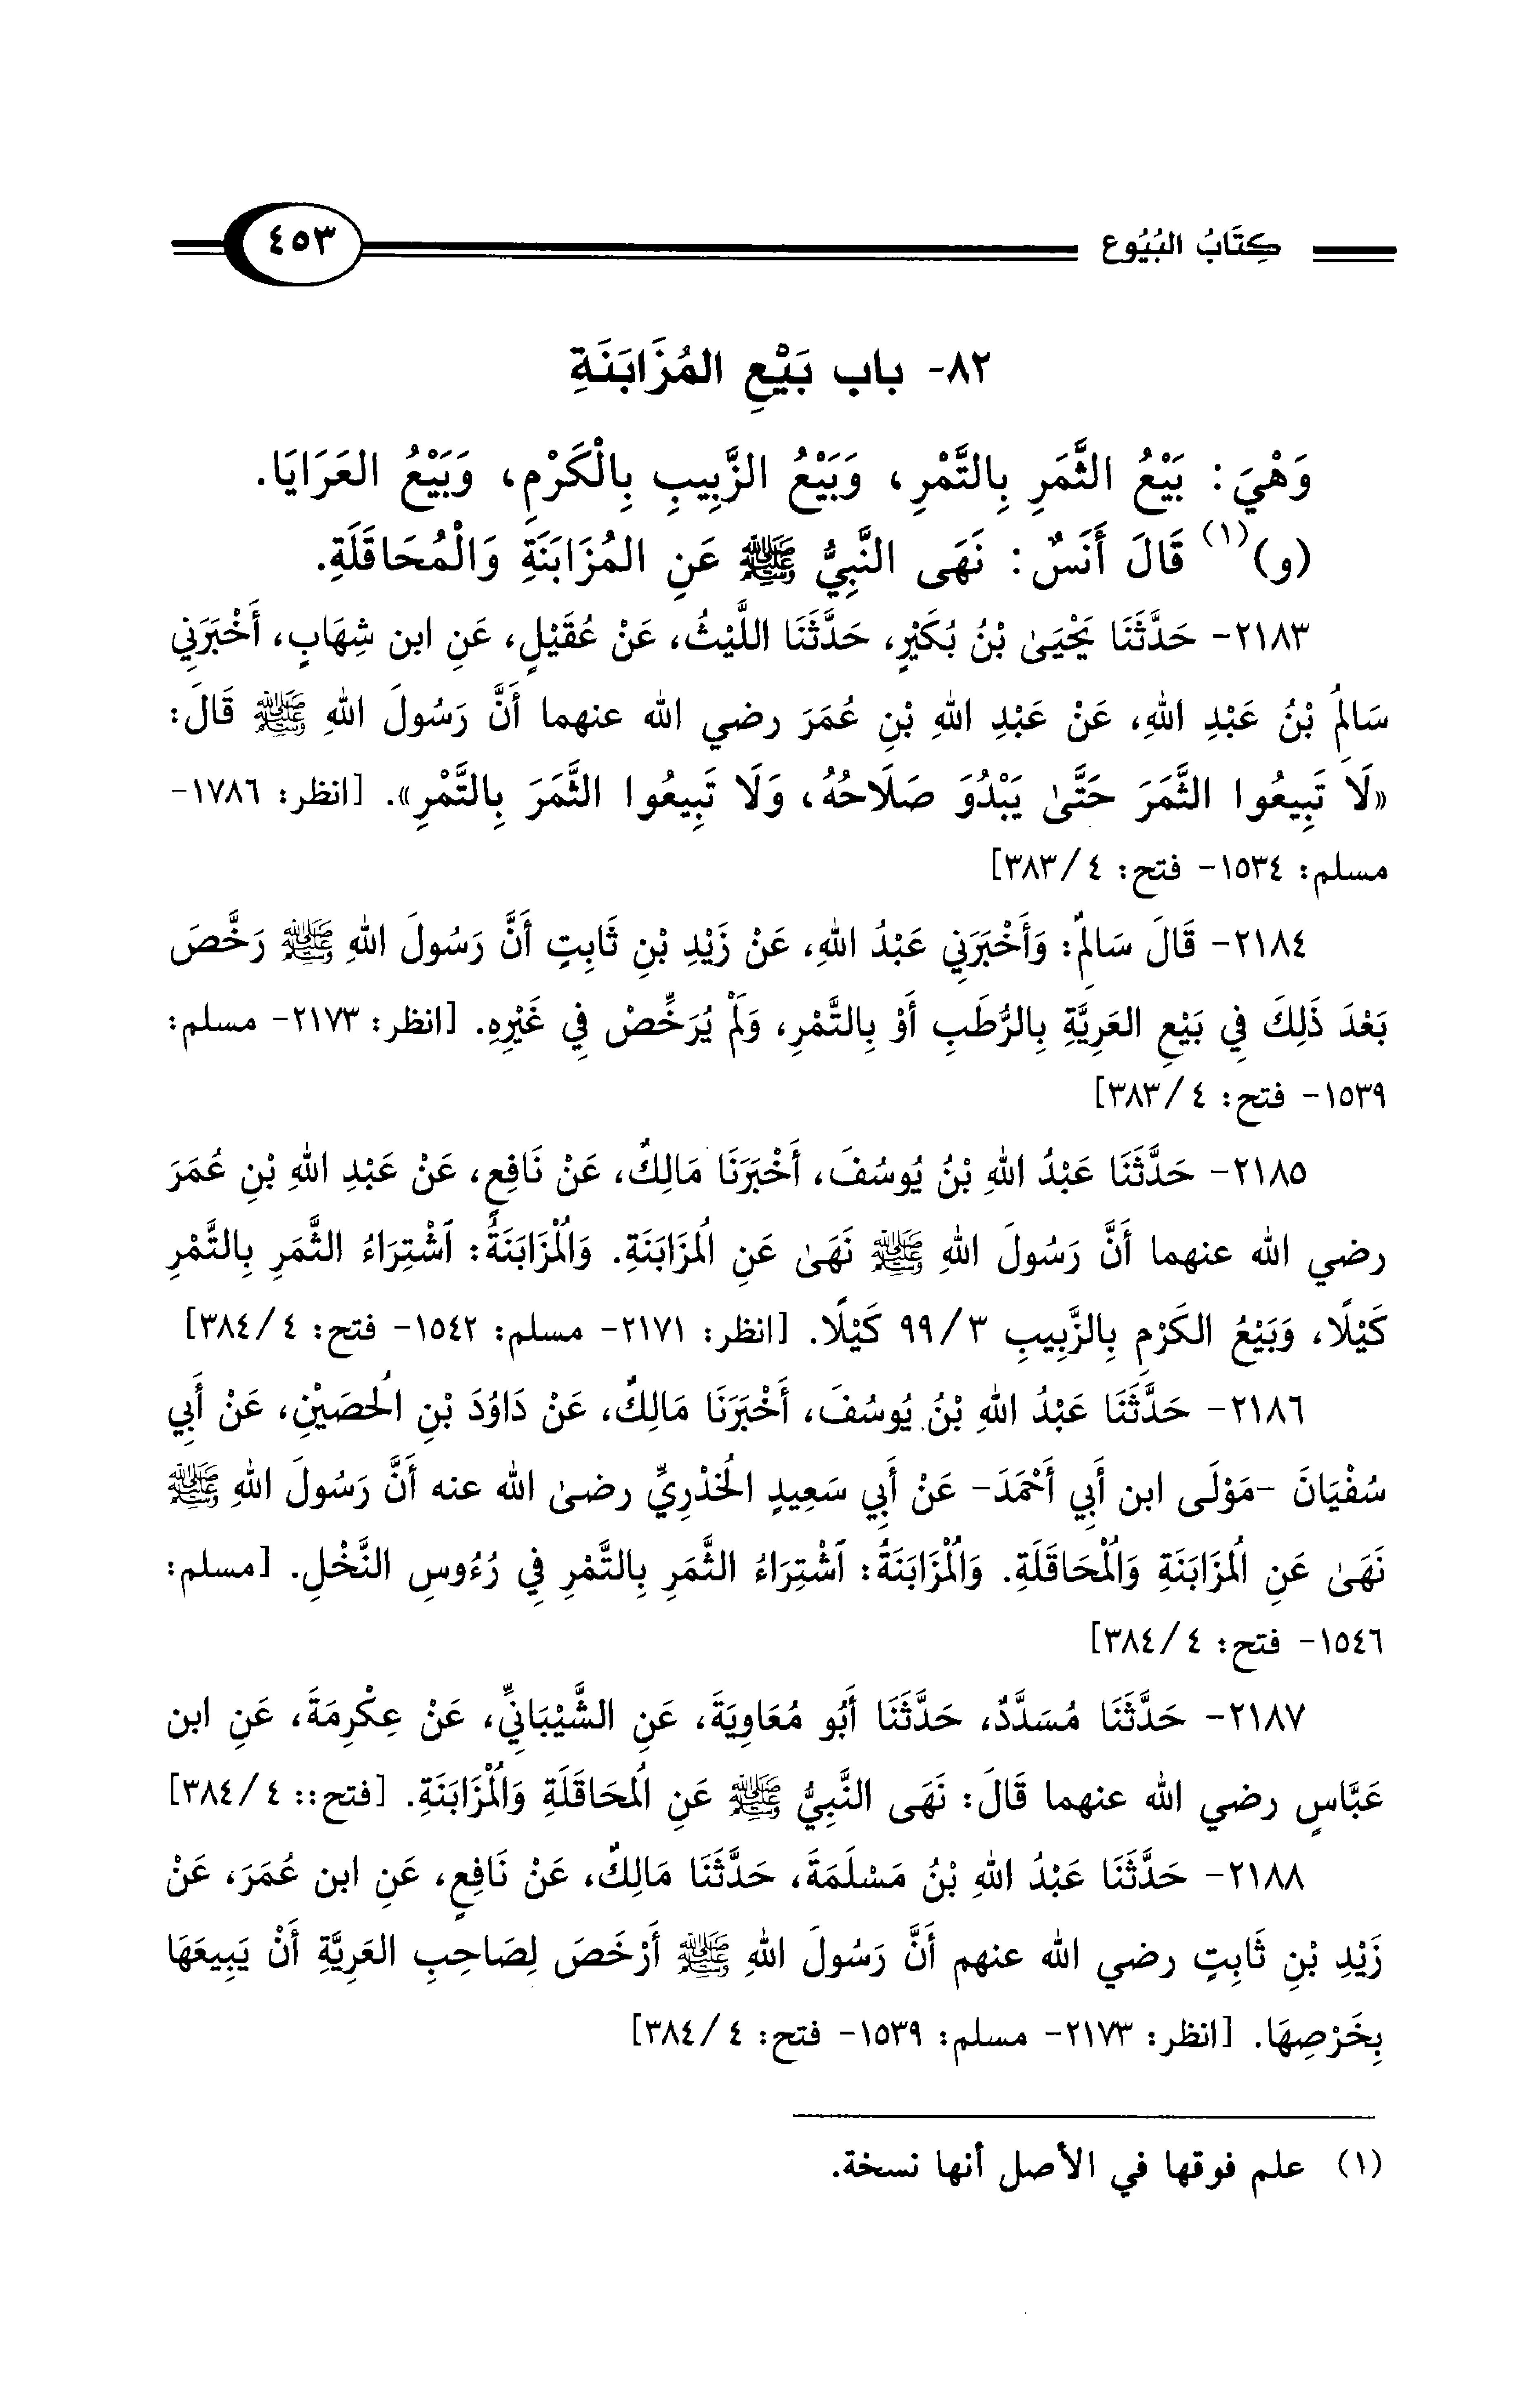 كِتَابُ البُيُوع ٤٥٣
٨٢- باب بَيْعِ المُزَابَنَةِ
وَهْيَ: بَيْعُ الثَّمَرِ بِالتَّمْرِ، وَبَيْعُ الزَّبِيبِ بِالْكَرْمِ، وَبَيْعُ العَرَايَا.
(و)(١) قَالَ أَنَسٌ: نَهَى النَّبِيُّ ﷺ عَنِ المُزَابَنَةِ وَالْمُحَاقَلَةِ.
٢١٨٣- حَدَّثَنَا يَحْيَىٰ بْنُ بُكَيْرٍ، حَدَّثَنَا اللَّيْثُ، عَنْ عُقَيْلٍ، عَنِ ابن شِهَابٍ، أَخْبَرَنِي
سَالِمُ بْنُ عَبْدِ اللهِ، عَنْ عَبْدِ اللهِ بْنِ عُمَرَ رضي الله عنهما أَنَّ رَسُولَ اللهِ ﷺ قَالَ:
«لَا تَبِيعُوا الثَّمَرَ حَتَّىٰ يَبْدُوَ صَلَاحُهُ، وَلَا تَبِيعُوا الثَّمَرَ بِالتَّمْرِ». [انظر: ١٧٨٦-
مسلم: ١٥٣٤- فتح: ٤/ ٣٨٣]
٢١٨٤- قَالَ سَالِمٌ: وَأَخْبَرَنِي عَبْدُ اللهِ، عَنْ زَيْدِ بْنِ ثَابِتٍ أَنَّ رَسُولَ اللهِ ﷺ رَخَّصَ
بَعْدَ ذَلِكَ فِي بَيْعِ العَرِيَّةِ بِالرُّطَبِ أَوْ بِالتَّمْرِ، وَلَمْ يُرَخِّصْ فِي غَيْرِهِ. [انظر: ٢١٧٣- مسلم:
١٥٣٩- فتح: ٤/ ٣٨٣]
٢١٨٥- حَدَّثَنَا عَبْدُ اللهِ بْنُ يُوسُفَ، أَخْبَرَنَا مَالِكٌ، عَنْ نَافِعٍ، عَنْ عَبْدِ اللهِ بْنِ عُمَرَ
رضي الله عنهما أَنَّ رَسُولَ اللهِ ﷺ نَهَىٰ عَنِ المُزَابَنَةِ. وَالْمُزَابَنَةُ: ٱشْتِرَاءُ الثَّمَرِ بِالتَّمْرِ
كَيْلًا، وَبَيْعُ الكَرْمِ بِالزَّبِيبِ ٣/ ٩٩ كَيْلًا. [انظر: ٢١٧١- مسلم: ١٥٤٢- فتح: ٤/ ٣٨٤]
٢١٨٦- حَدَّثَنَا عَبْدُ اللهِ بْنُ يُوسُفَ، أَخْبَرَنَا مَالِكٌ، عَنْ دَاوُدَ بْنِ الُحصَيْنِ، عَنْ أَبِي
سُفْيَانَ -مَوْلَى ابن أَبِي أَحْمَدَ- عَنْ أَبِي سَعِيدٍ الُخدْرِيِّ رضىٰ الله عنه أَنَّ رَسُولَ اللهِ ﷺ
نَهَىٰ عَنِ المُزَابَنَةِ وَالْمُحَاقَلَةِ. وَالْمُزَابَنَةُ: ٱشْتِرَاءُ الثَّمَرِ بِالتَّمْرِ فِي رُءُوسِ النَّخْلِ. [مسلم:
١٥٤٦- فتح: ٤/ ٣٨٤]
٢١٨٧- حَدَّثَنَا مُسَدَّدٌ، حَدَّثَنَا أَبُو مُعَاوِيَةَ، عَنِ الشَّيْبَانِيِّ، عَنْ عِكْرِمَةَ، عَنِ ابن
عَبَّاسٍ رضي الله عنهما قَالَ: نَهَى النَّبِيُّ ﷺ عَنِ المُحَاقَلَةِ وَالْمُزَابَنَةِ. [فتح:: ٤/ ٣٨٤]
٢١٨٨- حَدَّثَنَا عَبْدُ اللهِ بْنُ مَسْلَمَةَ، حَدَّثَنَا مَالِكٌ، عَنْ نَافِعٍ، عَنِ ابن عُمَرَ، عَنْ
زَيْدِ بْنِ ثَابِتٍ رضي الله عنهم أَنَّ رَسُولَ اللهِ ﷺ أَرْخَصَ لِصَاحِبِ العَرِيَّةِ أَنْ يَبِيعَهَا
بِخَرْصِهَا. [انظر: ٢١٧٣- مسلم: ١٥٣٩- فتح: ٤/ ٣٨٤]
(١) علم فوقها في الأصل أنها نسخة.